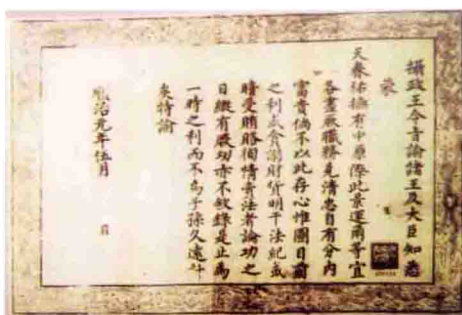 攝政王令旨諭諸王及大臣知悉
蒙
天眷佑撫有中原際此景運爾等宜
各盡厥職務克清忠自有分內
富貴倘不以此存心惟圖目前
之利或貪謝財貨明干法紀或
賄受賂賂徇情賣法者論功之
日縱有厥功亦不敘錄是止為
一時之利而不為子孫久遠計
矣特諭
順治元年伍月 日